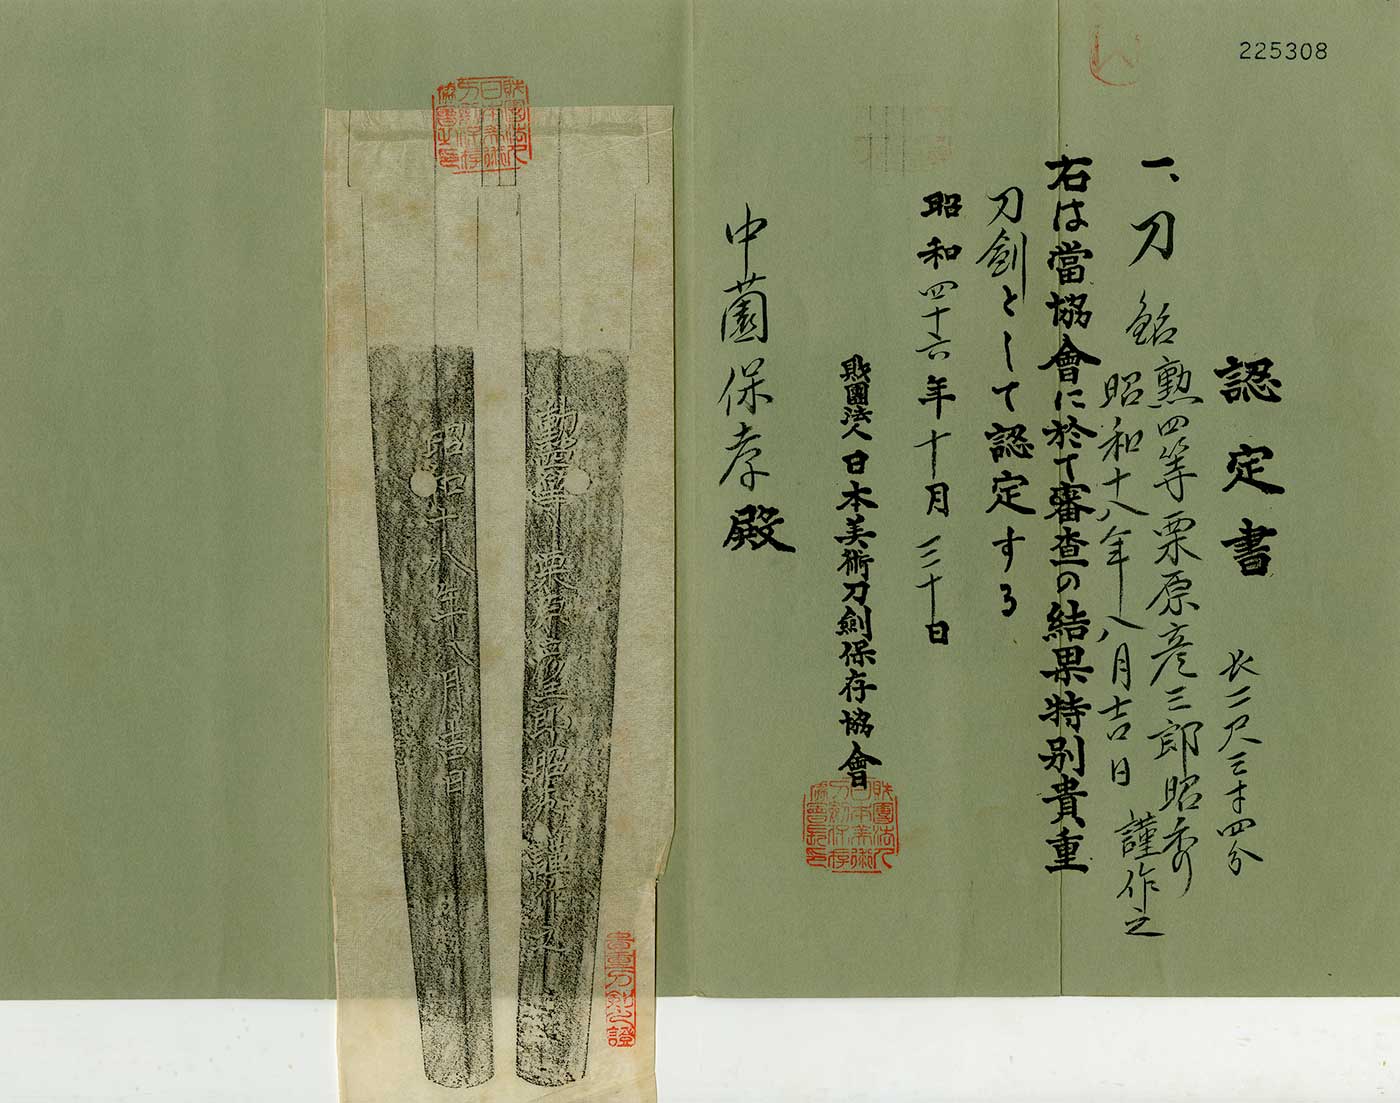 225308
認定書
一、刀 銘 勲四等栗原彦三郎昭秀 謹作之
昭和十八年八月吉日
長二尺三寸四分
右は當協會に於て審査の結果特別貴重
刀劍として認定する
昭和四十六年十月三十日
財團法人日本美術刀劍保存協會
財團法人日本美術刀劍保存協會長印
中薗保孝殿
財團法人日本美術刀劍保存協會之印
勲四等 栗原彦三郎昭秀謹作之
昭和十八年八月吉日
貴重刀劍之證